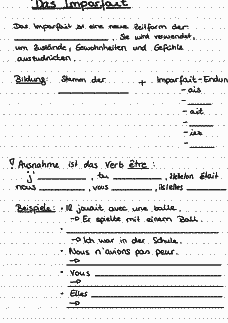 Das Imparfait
Das Imparfait ist eine neue Zeitform der
____________. Sie wird verwendet,
um Zustände, Gewohnheiten und Gefühle
auszudrücken.
Bildung: Stamm der ____________ + Imparfait-Endun
- ais
- ____
- ait
- ____
- iez
- ____
! Ausnahme ist das Verb être:
j' ________, tu ________, il/elle/on était
nous ________, vous ________, ils/elles ________
Beispiele: • Il jouait avec une balle.
→ Er spielte mit einem Ball.
• ____________
→ Ich war in der Schule.
• Nous n'avions pas peur.
→ ____________
• Vous ____________
→ ____________
• Elles ____________
→ ____________